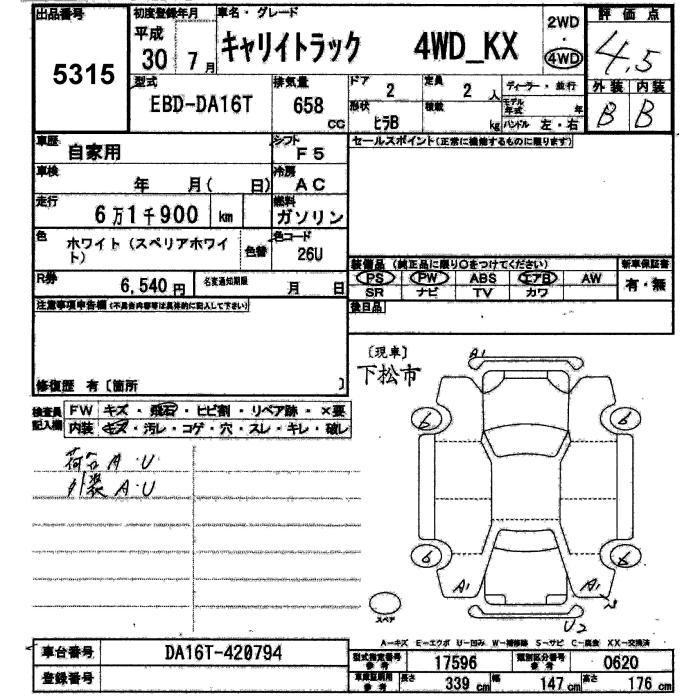 出品番号
5315
初度登録年月
平成
30年7月
車名・グレード
キャリイトラック 4WD_KX
2WD
・
4WD
評価点
4.5
外装 内装
B B
型式
EBD-DA16T
排気量
658
CC
ドア
2
定員
2人
形状
ヒラB
積載
kg
ディーラー・並行
モデル年式
年
ハンドル 左・右
車歴
自家用
シフト
F5
車検
年 月( 日)
冷房
AC
走行
6万1千900 km
燃料
ガソリン
色
ホワイト(スペリアホワイ
ト)
色替
色コード
26U
R券
6,540円
名変通知期限
月 日
セールスポイント(正常に機能するものに限ります)
装備品(純正品に限り○をつけてください)
PS PW ABS エアB AW
SR ナビ TV カワ
新車保証書
有・無
後日品
注意事項申告欄(不具合内容等は具体的に記入して下さい)
修復歴 有〔箇所 〕
検査員
記入欄
FW キズ・飛石・ヒビ割・リペア跡・×要
内装 キズ・汚レ・コゲ・穴・スレ・キレ・破レ
荷台A・U
外装A・U
〔現車〕
下松市
A1
6
6
6
6
A1
A1
U2
スペア
A-キズ E-エクボ U-凹み W-補修跡 S-サビ C-腐食 XX-交換済
車台番号
DA16T-420794
登録番号
型式指定番号
参考
17596
類別区分番号
参考
0620
車庫証明用
参考
長さ
339cm
幅
147cm
高さ
176cm